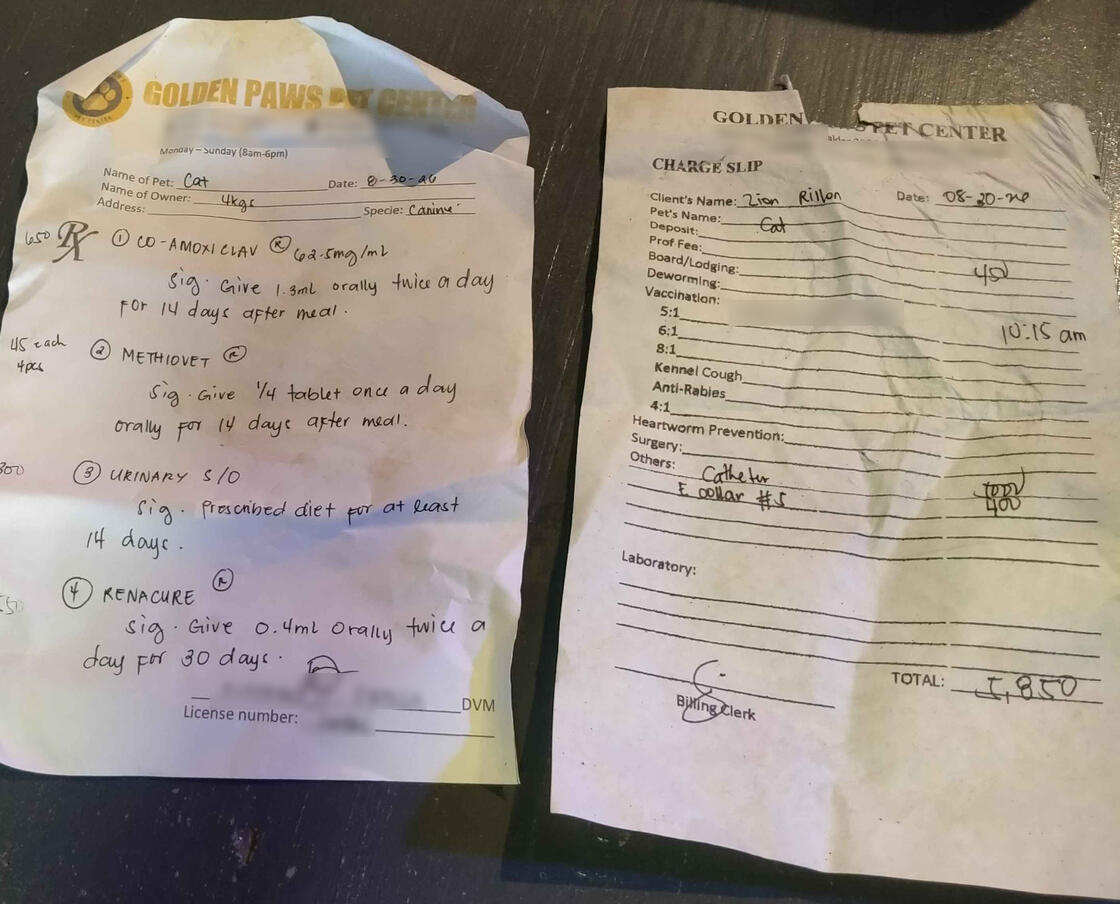 GOLDEN PAWS PET CENTER
PET CENTER
Monday – Sunday (8am-6pm)
Name of Pet: Cat Date: 8-30-26
Name of Owner: 4kgs
Address: Specie: Canine
650 Rx ① CO-AMOXICLAV Ⓡ 62.5mg/mL
Sig. Give 1.3mL orally twice a day
for 14 days after meal.
45 each
4pcs
② METHIOVET Ⓡ
Sig. Give 1/4 tablet once a day
orally for 14 days after meal.
300 ③ URINARY S/O
Sig. Prescribed diet for at least
14 days.
④ RENACURE Ⓡ
Sig. Give 0.4ml orally twice a
day for 30 days.
DVM
License number:
GOLDEN PET CENTER
CHARGE SLIP
Client's Name: Zion Rillon Date: 08-20-
Pet's Name: Cat
Deposit:
Prof Fee:
Board/Lodging: 450
Deworming:
Vaccination:
5:1
6:1 10:15 am
8:1
Kennel Cough
Anti-Rabies
4:1
Heartworm Prevention:
Surgery:
Others: Catheter
E collar #5 400
Laboratory:
TOTAL: 5,850
Billing Clerk